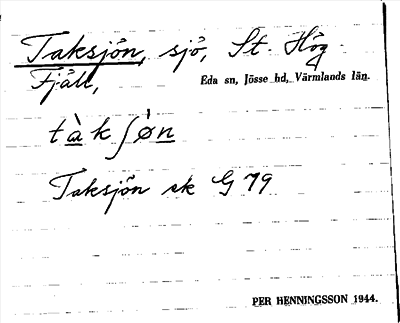 Taksjön, sjö, St. Hög-
Fjäll,
Eda sn, Jösse hd, Värmlands län.
tàkʃøn
Taksjön sk G 79
PER HENNINGSSON 1944.